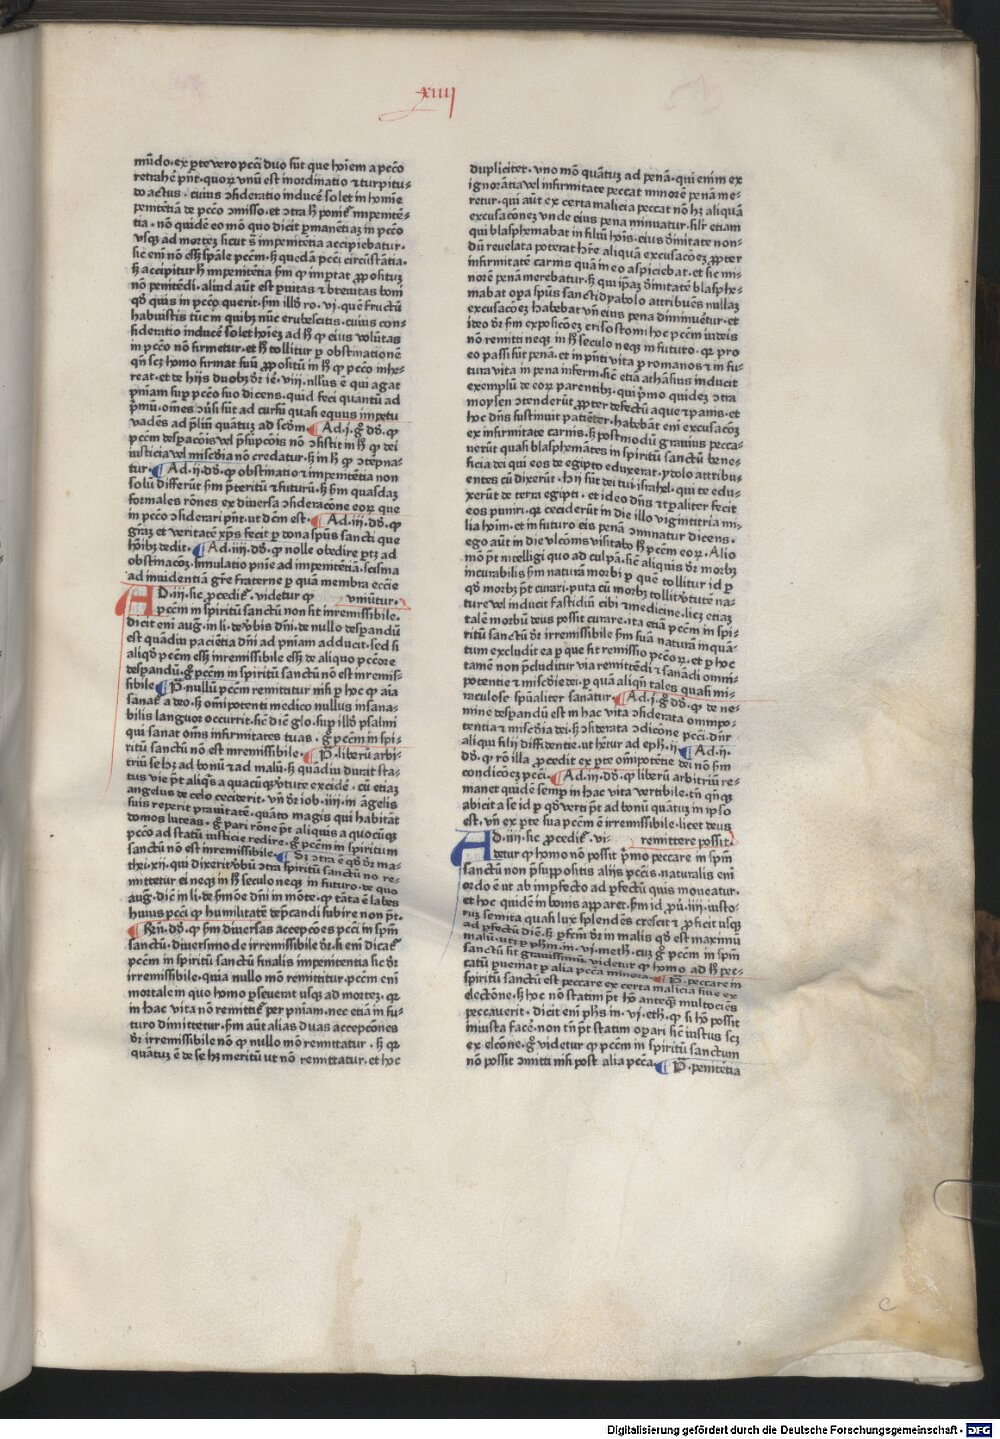 xiiij
mūdo·ex p̱te vero pccī duo sūt que hoīem a pccō
retrahēt pn̄t·quoꝝ vnū est inordinatio ⁊ turpitu-
do actus·cuius ɔsideratio inducē solet in homīe
penitētiā de pccō ɔmisso·et ɔtra
tia·nō quidē eo mō quo dicit ꝑmanētiaꝫ in pccō
vsqꝫ ad morteꝫ sicut s̄ impenitētia accipiebatur·
sic enī nō essꝫ spāle pccm̄·sꝫ quedā pccī circūstātia·
nō penitēdi·aliud aūt est ꝑuitas ⁊ breuitas boni
qd̄ quis in pccō querit·ẜm illd̄ ro·vj·quē fructū
habuistis tūc in quibꝫ nūc erubescitis·cuius con-
in pccō nō firmetur·et hͦ tollitur ꝑ obstinationē
reat·et de hijs duobꝫ dr̄ ie·viij·nllꝰs ē qui agat
pniam suꝑ pccō suo dicens·quid feci quantū ad
vadēs ad pliū quātuꝫ ad scdm̄ Ad·j·gͦ dd̄·ꝙ
iusticia vel misc̄dia nō credatur·sꝫ in hͦ ꝙ ɔtēpna-
tur· Ad·ij·dd̄·ꝙ obstinatio ⁊ impenitētia non
solū differūt ẜm p̄teritū ⁊ futurū·sꝫ ẜm quasdaꝫ
formales rōnes ex diuersa ɔsideracōne eoꝝ que
in pccō ɔsiderari pn̄t·ut dc̄m est· Ad·iij·dd̄·ꝙ
graꝫ et veritatē xp̄s fecit ꝑ dona spūs sancti que
hoībꝫ dedit· Ad·iiij·dd̄·ꝙ nolle obedire ꝑtꝫ ad
obstinacōꝫ·simulatio pnie ad impenitētiā·scisma
ad inuidentiā gr̄e fraterne ꝑ quā membra ecclē
AD·iij·sic ꝓcedit̄·videtur ꝙ vniūtur·
pccm̄ in spiritū sanctū non sit irremissibile·
dicit eni aug·in li·de v̄bis dn̄i·de nullo despandū
est quādiu paciētia dn̄i ad pniam adducit·sed si
aliqd̄ pccm̄ essꝫ irremissibile essꝫ de aliquo pccōre
despandū·gͦ pccm̄ in spiritū sanctū nō est irremis-
sibile P̄·nullū pccm̄ remittitur nisi ꝑ hoc ꝙ aīa
sanat̄ a deo·sꝫ omīpotenti medico nullus insana-
bilis languor occurrit·sic dic̄ glo·suꝑ illd̄ psalmi
qui sanat om̄s infirmitates tuas·gͦ pccm̄ in spi-
ritū sanctū nō est irremissibile· P̄·liberū arbi-
triū se hꝫ ad bonū ⁊ ad malū·sꝫ quādiu durat sta-
tus vie pt̄ aliqͥs a quacūqꝫ v̄tute excidē·cū etiaꝫ
angelus de celo ceciderit·vn̄ dr̄ iob·iiij·in āgelis
suis reperit prauitatē·quāto magis qui habitāt
domos luteas·gͦ pari rōne pt̄ aliquis a quocūqꝫ
pccō ad statū iusticie redire·gͦ pccm̄ in spiritum
sanctū nō est irremissibile· Sꝫ ɔtra ē qd̄ dr̄ ma-
thei·xij·qui dixerit v̄bū ɔtra spiritū sanctū no re-
mittetur ei neqꝫ in hͦ seculo neqꝫ in futuro·de quo
aug·dic̄ in li·de ẜmōe dn̄i in mōte·ꝙ tāta ē labes
huius pccī ꝙ humilitatē depcandi subire non pt̄·
Rn̄·dd̄·ꝙ ẜm diuersas accepcōes pccī in spm̄
sanctū·diuersimode irremissibile dr̄·si eni dicat̄
pccm̄ in spiritū sanctū finalis impenitentia sic dr̄
irremissibile·quia nullo mō remittitur·pccm̄ eni
mortale in quo homo ꝑseuerat usqꝫ ad morteꝫ·qꝛ
in hac vita nō remittit̄ per pniam·nec etiā in fu-
turo dimittetur·ẜm aūt alias duas accepcōnes
dr̄ irremissibile nō ꝙ nullo mō remittatur·sꝫ qꝛ
quātuꝫ ē de se hꝫ meritū ut nō remittatur·et hoc
dupliciter·vno mō quātuꝫ ad penā·qui enim ex
ignorātia vel infirmitate peccat minorē penā me-
retur·qui aūt ex certa malicia peccat nō hꝫ aliquā
excusacōneꝫ vnde eius pena minuatur·silr̄ etiam
qui blasphemabat in filiū hoīs·eius diuinitate non-
dū reuelata poterat hr̄e aliquā excusacōeꝫ ꝓpter
infirmitatē carnis quā in eo aspiciebat·et sic mi-
norē penā merebatur·sꝫ qui ipaꝫ diuinitatē blasphe-
mabat opa spūs sancti dyabolo attribuēs nullaꝫ
excusacōeꝫ habebat vn̄ eius pena diminuētur·et
ideo dr̄ ẜm exposicōeꝫ crisostomi hoc pccm̄ iudeis
nō remitti neqꝫ in hͦ seculo neqꝫ in futuro·qꝛ pro
eo passi sūt penā·et in pn̄ti vita ꝑ romanos ⁊ in fu-
tura vita in pena inferni·sic̄ etiā athāsius inducit
exemplū de eoꝝ parentibꝫ·qui pͥmo quideꝫ ɔtra
moysen ɔtenderūt ꝓpter defectū aque ⁊ panis·et
hoc dn̄s sustinuit patiēter·habebāt eni excusacōꝫ
ex infirmitate carnis·sꝫ postmodū grauius pecca-
uerūt quasi blasphemātes in spiritū sanctū bene-
ficia dei qui eos de egipto eduxerat·ydolo attribu-
entes cū dixerūt·hij sūt dei tui israhel·qui te edu-
xerūt de terra egipti·et ideo dn̄s ⁊ tꝑaliter fecit
eos puniri·qꝛ ceciderūt in die illo viginti tria mi-
lia hoīm·et in futuro eis penā ɔminatur dicens·
ego aūt in die vlcōnis visitabo hͦ pccm̄ eoꝝ·Alio
mō pt̄ intelligi quo ad culpā·sic̄ aliquis dr̄ morbꝫ
incurabilis ẜm naturā morbi ꝑ quē tollitur id ꝑ
qd̄ morbꝫ pt̄ curari·puta cū morbꝫ tollit v̄tutē na-
ture vel inducit fastidiū cibi ⁊ medicine·licꝫ etiaꝫ
talē morbū deus possit curare·ita etiā pccm̄ in spi-
ritū sanctū dr̄ irremissibile ẜm suā naturā inquā-
tum excludit ea ꝑ que sit remissio pccōꝝ·et ꝑ hoc
tamē non p̄cluditur via remittēdi ⁊ sanādi omni-
potentie ⁊ misc̄die dei·ꝑ quā aliqn̄ tales quasi mi-
raculose spūaliter sanātur· Ad·j·gͦ dd̄·ꝙ de ne-
mine despandū est in hac vita ɔsiderata omnipo-
tentia ⁊ misc̄dia dei·sꝫ ɔsiderata ɔdicōne pccī·dn̄r
aliqui filij diffidentie·ut hētur ad eph·ij· Ad·ij·
dd̄·ꝙ rō illa ꝓcedit ex p̱te omīpotētie dei nō ẜm
condicōeꝫ pccī· Ad·iij·dd̄·ꝙ liberū arbitriū re-
manet quidē semꝑ in hac vita vertibile·tn̄ qn̄qꝫ
abicit a se id ꝑ qd̄ verti pt̄ ad bonū quātum in ipso
est·vn̄ ex p̱te sua pccm̄ ē irremissibile·licet deus
AD·iiij·sic ꝓcedit̄·vi- remittere possit·
detur ꝙ homo nō possit pͥmo peccare in spm̄
sanctū non p̄suppositis alijs pccīs·naturalis eni
ordo ē ut ab imꝑfecto ad ꝑfectū quis moueatur·
et hoc quidem in bonis apparet·ẜm id ꝓu·iiij·iusto-
rum semita quasi lux splendēs crescit ⁊ ꝓficit usqꝫ
ad ꝑfectū diē·sꝫ ꝑfcm̄ dr̄ in malis qd̄ est maximū
sanctū sit grauissimū videtur ꝙ homo ad hͦ pec-
catū ꝑueniat ꝑ alia pccā minora· P̄·peccare in
spiritū sanctū est peccare ex certa malicia siue ex
electōne·sꝫ hoc nō statim pt̄ hō anteqꝫ multociēs
peccauerit·dicit eni phs̄ in·v·eth·ꝙ si hō possit
iniusta facē·non tn̄ pt̄ statim oꝑari sic̄ iustus scꝫ
ex elcōne·gͦ videtur ꝙ pccm̄ in spiritū sanctum
nō possit ɔmitti nisi post alia pccā· P̄·penitētia
Digitalisierung gefördert durch die Deutsche Forschungsgemeinschaft - DFG